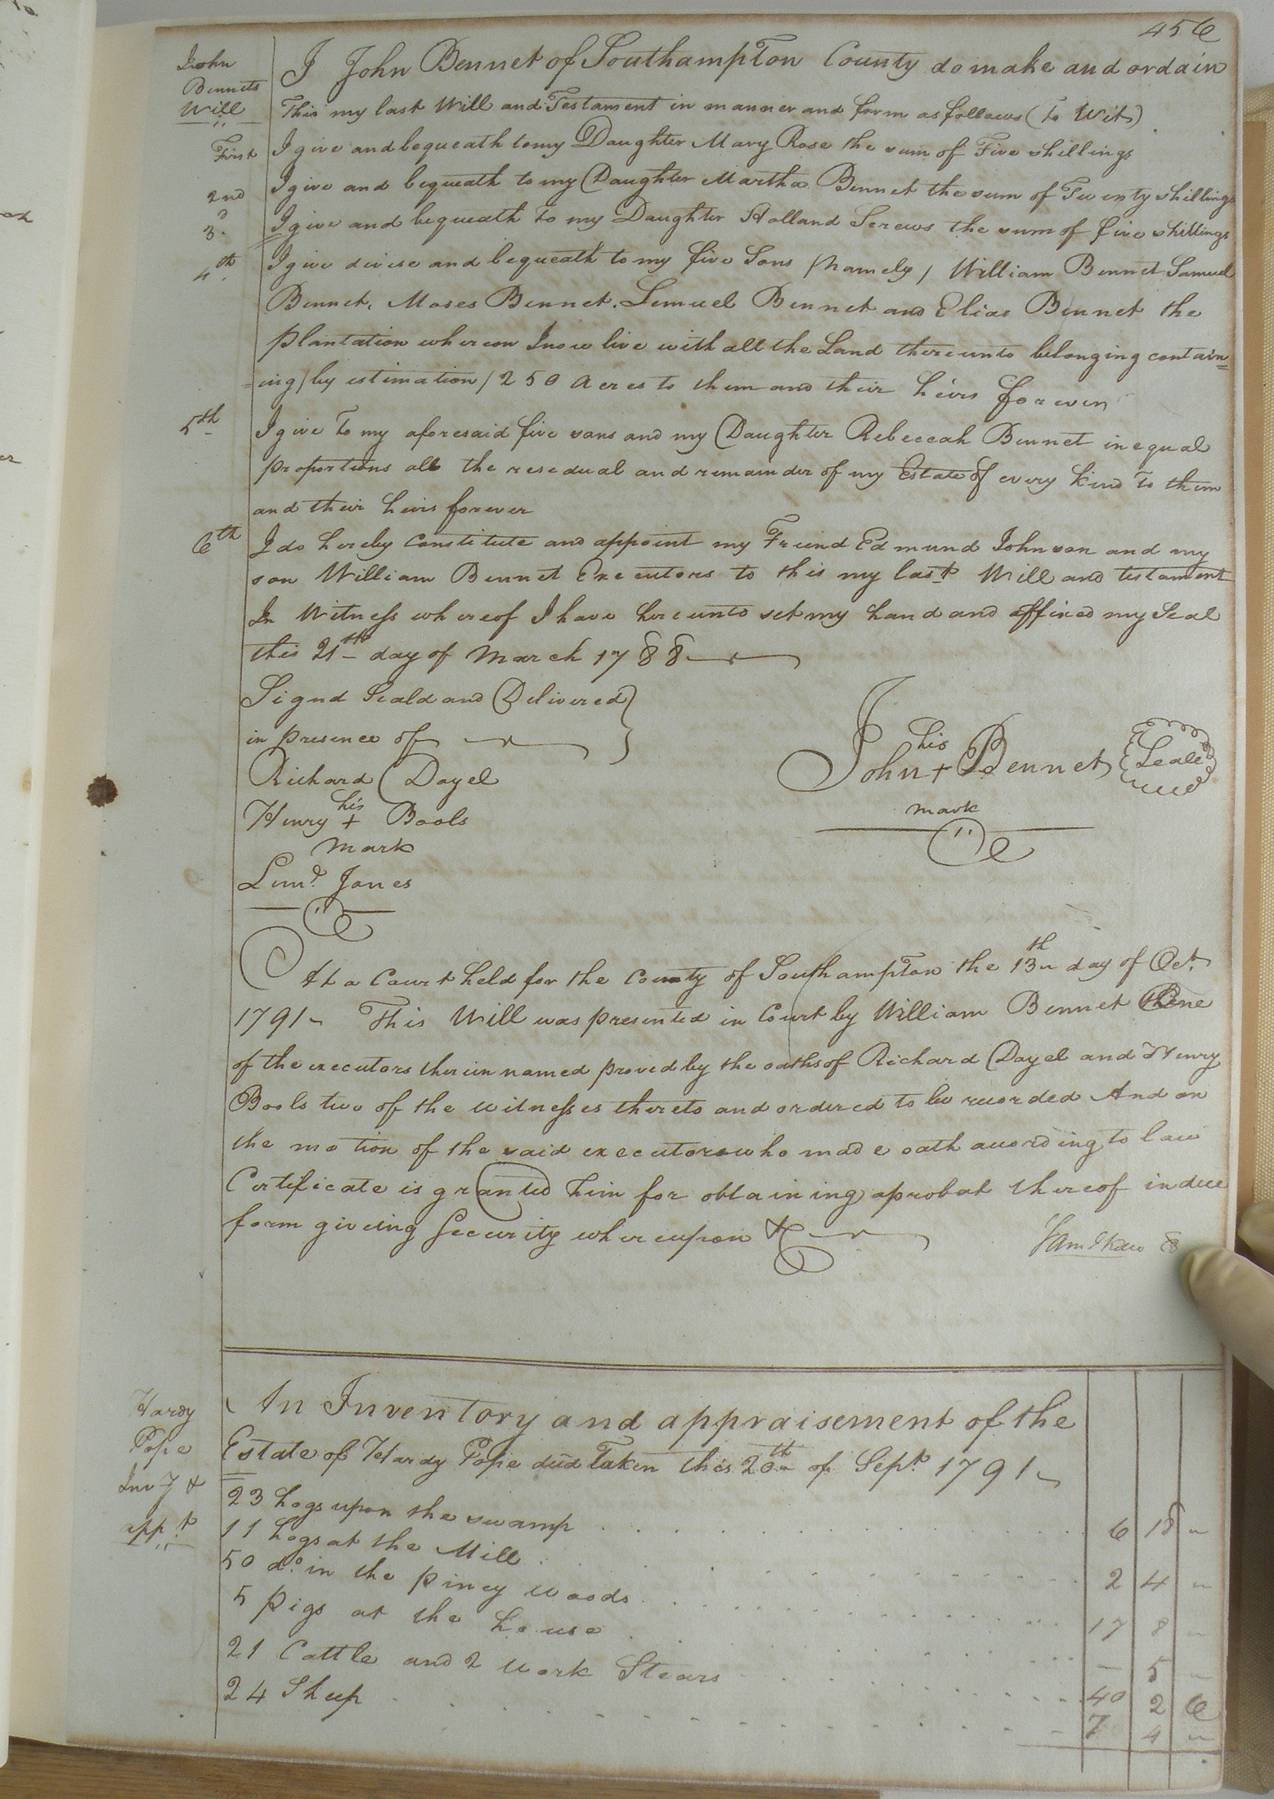 456
John Bennets Will
I John Bennet of Southampton County do make and ordain
This my last Will and Testament in manner and form as follows (To Wit)
First I give and bequeath to my Daughter Mary Rose the sum of Five shillings
2nd I give and bequeath to my Daughter Martha Bennet the sum of Twenty shillings
3d I give and bequeath to my Daughter Holland Screws the sum of five shillings
4th I give devise and bequeath to my five Sons /Namely/ William Bennet Samuel
Bennet, Moses Bennet. Lemuel Bennet and Elias Bennet the
plantation whereon I now live with all the Land thereunto belonging contain=
=ing /by estimation/ 250 acres to them and their heirs forever
5th I give To my aforesaid five sons and my Daughter Rebeccah Bennet in equal
proportions all the resedual and remainder of my Estate of every kind To them
and their heirs forever
6th I do hereby Constitute and appoint my Friend Edmund Johnson and my
son William Bennet Executors to this my last Will and testament
In Witness whereof I have hereunto set my hand and affixed my Seal
this 21th day of March 1788
Signd Seald and Delivered
in presence of
John his + mark Bennet Seale
Richard Dayel
Henry his + mark Bools
Lemd. Jones
At a Court held for the County of Southampton the 13th day of Oct.
1791 This Will was presented in Court by William Bennet One
of the executors therein named proved by the oaths of Richard Dayel and Henry
Bools two of the witnesses thereto and ordered to be recorded And on
the motion of the said executors who made oath according to law
Certificate is granted him for obtaining aprobat thereof in due
form giveing Security whereupon &
Hardy Pope Invy & appt.
An Inventory and appraisement of the
Estate of Hardy Pope decd Taken this 20th of Sept. 1791
23 hogs upon the swamp 6 18 "
11 hogs at the Mill 2 4 "
50 do. in the piney woods 17 8 "
5 pigs at the house — 5 "
21 Cattle and 2 work Stears 40 2 6
24 Sheep 7 4 "